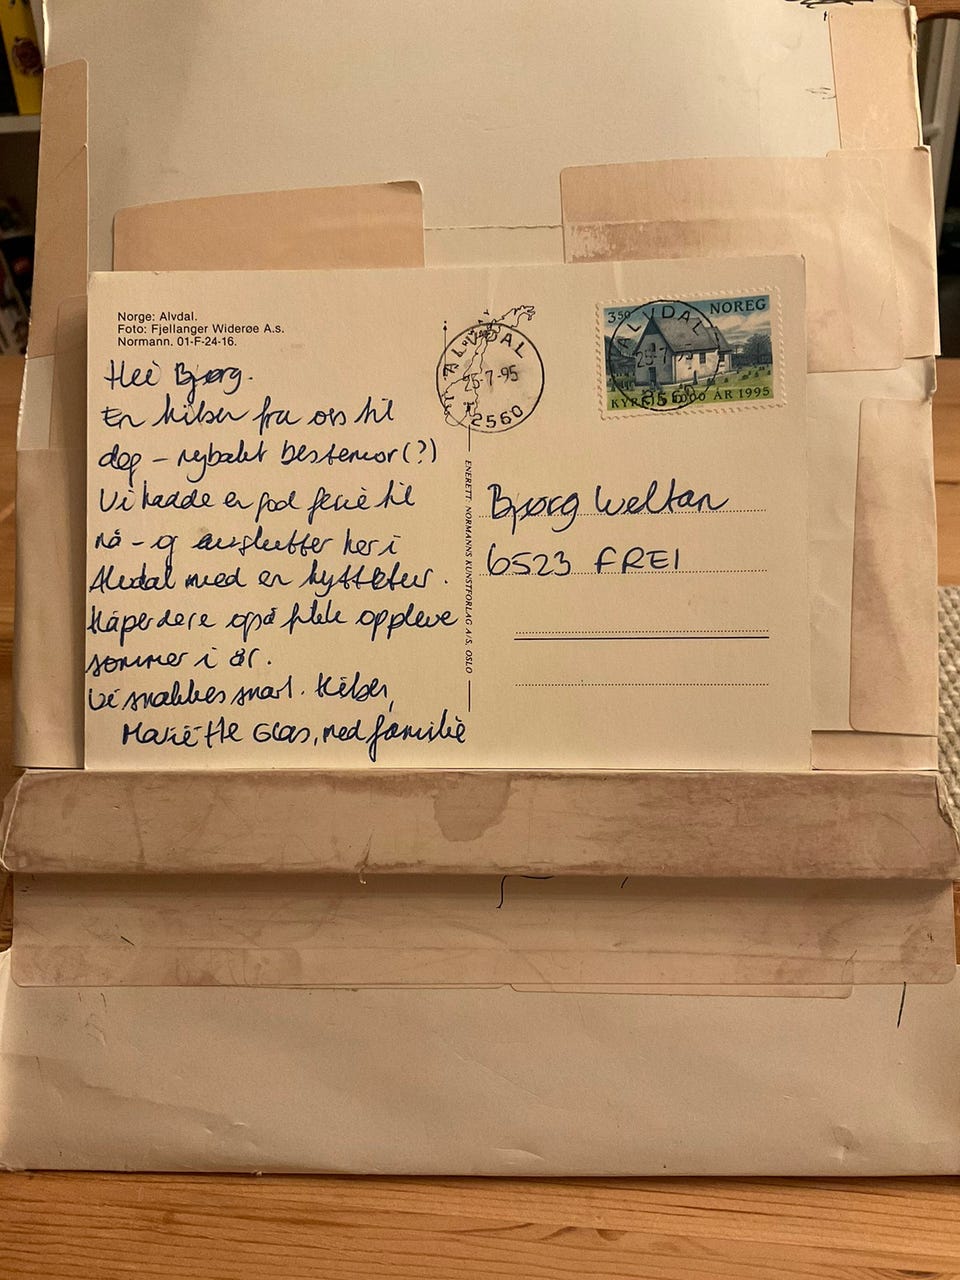 Norge: Alvdal.
Foto: Fjellanger Widerøe A.s.
Normann. 01-F-24-16.
Hei Bjørg.
En hilsen fra oss til
deg - nybakt bestemor (?)
Vi hadde en god ferie til
nå - og avslutter her i
Alvdal med en hyttetur.
Håper dere også fikk oppleve
sommer i år.
Vi snakkes snart. Hilsen,
Mariëtte Glas, med familie
ALVDAL
25-7-95
2560
ENERETT: NORMANNS KUNSTFORLAG A/S, OSLO
350 NOREG
ALVDAL
25-7
2560
KYRKJE 1000 ÅR 1995
Bjørg Weltan
6523 FREI